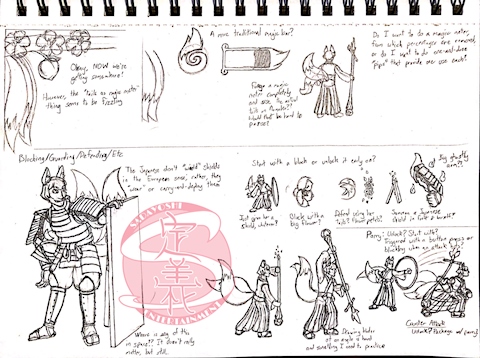 Okay, NOW we're
getting somewhere!
However, the "tails as magic meter"
thing seems to be fizzling
A more traditional magic bar?
Forego a magic
meter completely
and use the actual
tails as
Would that be hard to
Do I want to do a magic meter,
from which percentages are removed,
or do I want to do
"pips" that provide one use each?
Blocking/Guarding/Defending/Etc
The Japanese don't "wield" shields
in the European sense, rather, they
"wear" or carry-and-deploy them
Where is any of this
in space?? It doesn't really
matter, but still.
SADAYOSHI
序
美
ENTERTAINMENT
Start with a block or unlock it early on?
Just give her a
shield, whatever?
Block with a
big flower?
Defend using her
tails? Flower petals?
Summon a Japanese
shield in field of battle?
Big ghostly
arm?!
Drawing blades
at an angle is hard
and something I need to practice
Parry: Unlock? Start with?
Triggered with a button press or
blocking when an attack
Counter Attack:
Unlock? Package w/ parry?